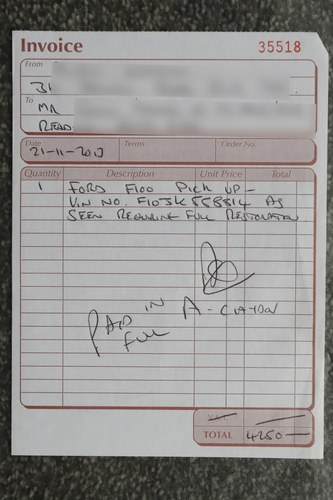 Invoice 35518
From
31
To
MR
READ
Date Terms Order No.
21-11-2013
Quantity Description Unit Price Total
1 FORD F100 PICK UP -
VIN NO. F10JK558814 AS
SEEN REQUIRING FULL RESTORATION
PAID IN
FULL
A-
TOTAL 4250 —